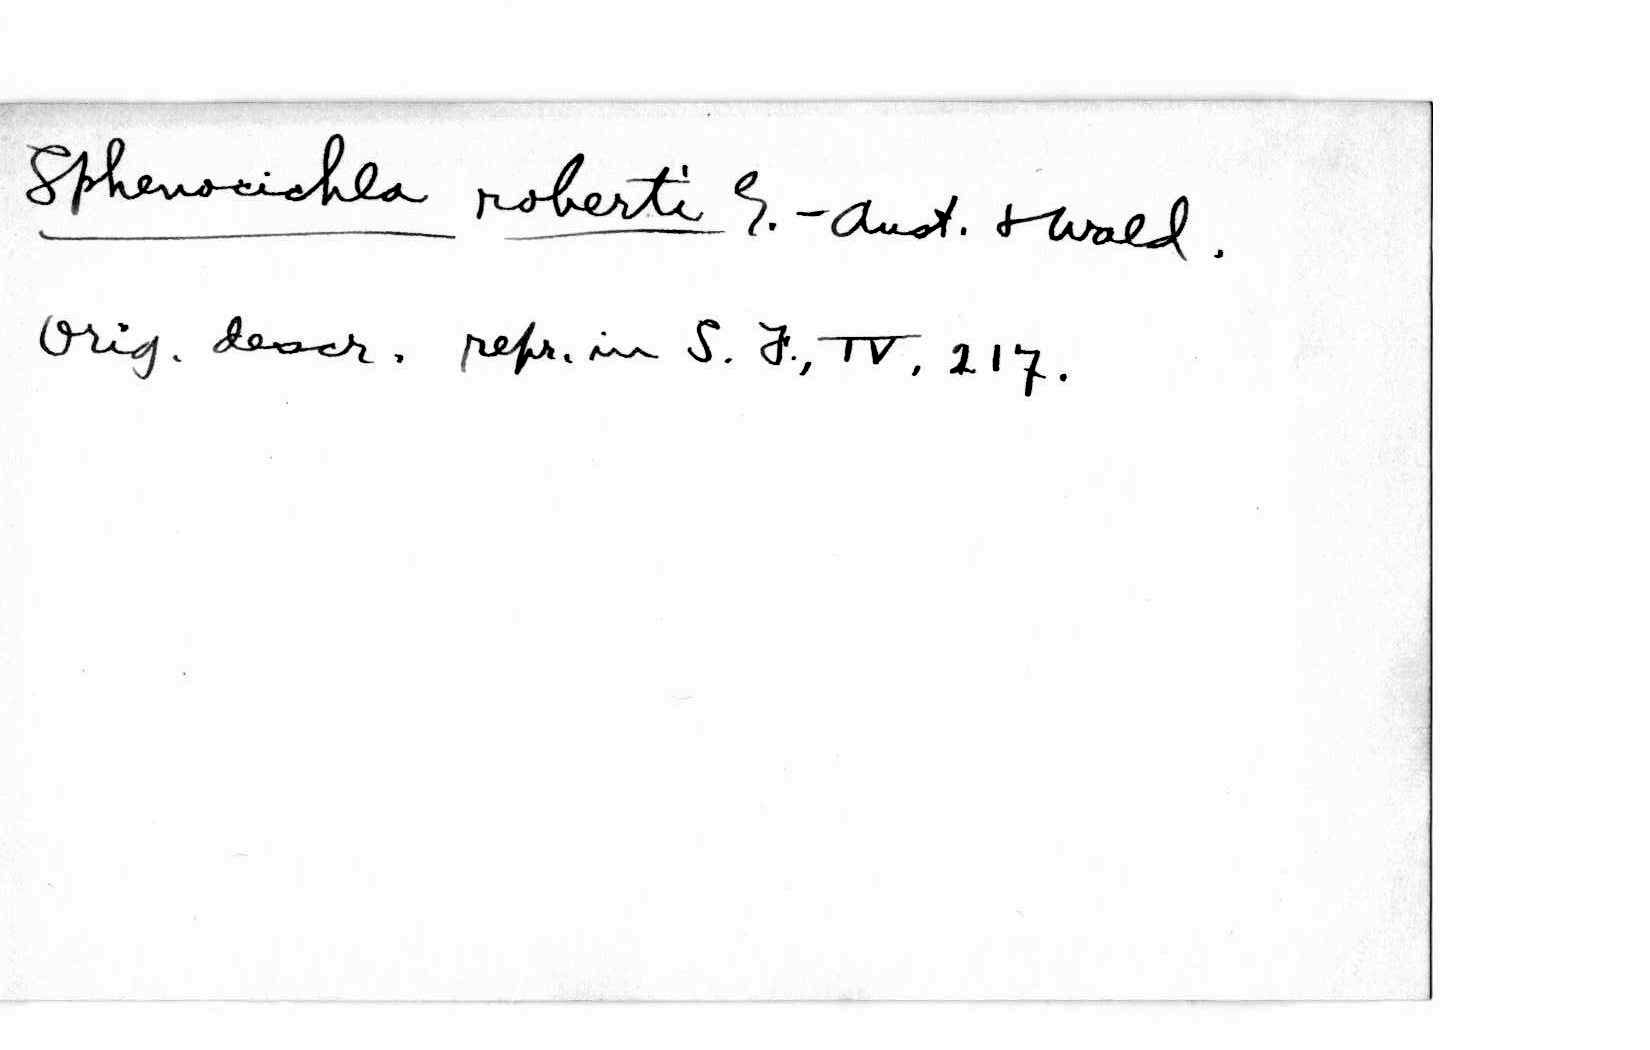 Sphenocichla roberti G.-Aust. & Wald.
Orig. descr. repr. in S. F., IV, 217.